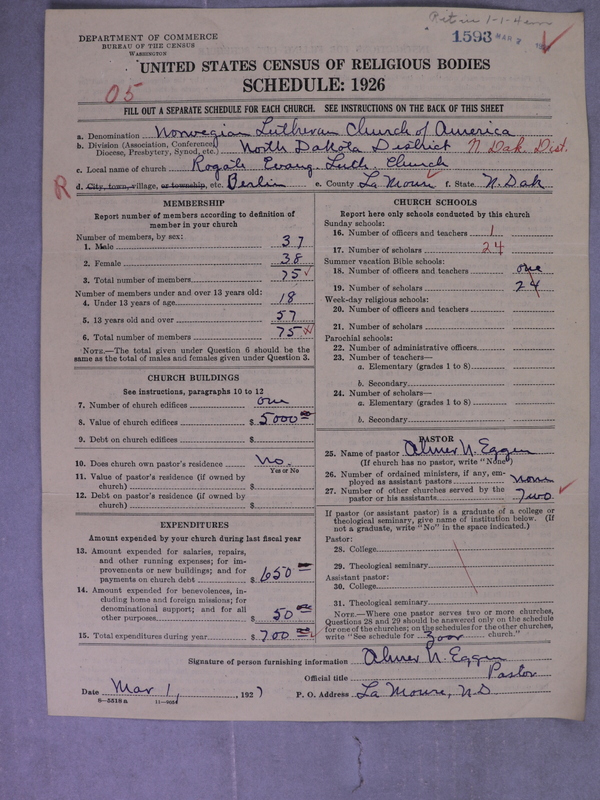 DEPARTMENT OF COMMERCE
BUREAU OF THE CENSUS
WASHINGTON
1593 MAR 7
UNITED STATES CENSUS OF RELIGIOUS BODIES
SCHEDULE: 1926
05
FILL OUT A SEPARATE SCHEDULE FOR EACH CHURCH. SEE INSTRUCTIONS ON THE BACK OF THIS SHEET
a. Denomination Norwegian Lutheran Church of America
b. Division (Association, Conference, Diocese, Presbytery, Synod, etc.) North Dakota District N. Dak. Dist.
c. Local name of church Rogate Evang. Luth. Church
R
d. City, town, village, or township, etc. Berlin e. County La Moure f. State N. Dak
MEMBERSHIP
Report number of members according to definition of member in your church
Number of members, by sex:
1. Male 37
2. Female 38
3. Total number of members 75
Number of members under and over 13 years old:
4. Under 13 years of age 18
5. 13 years old and over 57
6. Total number of members 75
NOTE.—The total given under Question 6 should be the same as the total of males and females given under Question 3.
CHURCH BUILDINGS
See instructions, paragraphs 10 to 12
7. Number of church edifices one
8. Value of church edifices $ 5000 00
9. Debt on church edifices $
10. Does church own pastor's residence No.
Yes or No
11. Value of pastor's residence (if owned by church) $
12. Debt on pastor's residence (if owned by church) $
EXPENDITURES
Amount expended by your church during last fiscal year
13. Amount expended for salaries, repairs, and other running expenses; for improvements or new buildings; and for payments on church debt $ 650 00
14. Amount expended for benevolences, including home and foreign missions; for denominational support; and for all other purposes $ 50 00
15. Total expenditures during year $ 700 00
CHURCH SCHOOLS
Report here only schools conducted by this church
Sunday schools:
16. Number of officers and teachers 1
17. Number of scholars 24
Summer vacation Bible schools:
18. Number of officers and teachers one
19. Number of scholars 24
Week-day religious schools:
20. Number of officers and teachers
21. Number of scholars
Parochial schools:
22. Number of administrative officers
23. Number of teachers—
a. Elementary (grades 1 to 8)
b. Secondary
24. Number of scholars—
a. Elementary (grades 1 to 8)
b. Secondary
PASTOR
25. Name of pastor Almer N. Eggen
(If church has no pastor, write "None")
26. Number of ordained ministers, if any, employed as assistant pastors none
27. Number of other churches served by the pastor or his assistants Two
If pastor (or assistant pastor) is a graduate of a college or theological seminary, give name of institution below. (If not a graduate, write "No" in the space indicated.)
Pastor:
28. College
29. Theological seminary
Assistant pastor:
30. College
31. Theological seminary
NOTE.—Where one pastor serves two or more churches, Questions 28 and 29 should be answered only on the schedule for one of the churches; on the schedules for the other churches, write "See schedule for Zoar church."
Signature of person furnishing information Almer N. Eggen
Official title Pastor
Date Mar 1, , 1927 P. O. Address La Moure, N.D
8—5518a 11—9051